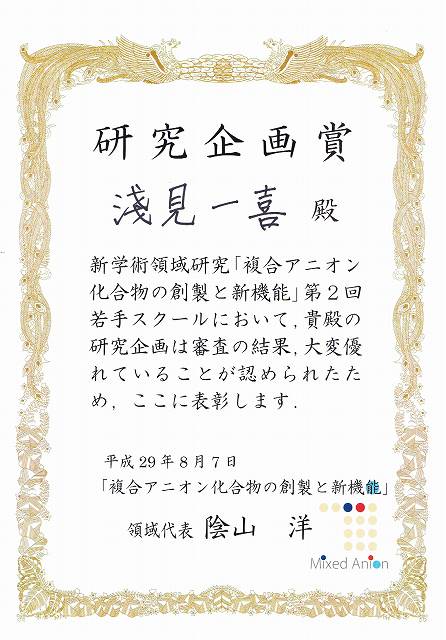 研究企画賞
淺見一喜 殿
新学術領域研究「複合アニオン
化合物の創製と新機能」第2回
若手スクールにおいて,貴殿の
研究企画は審査の結果,大変優
れていることが認められたた
め,ここに表彰します.
平成29年8月7日
「複合アニオン化合物の創製と新機能」
領域代表 陰山 洋
Mixed Anion